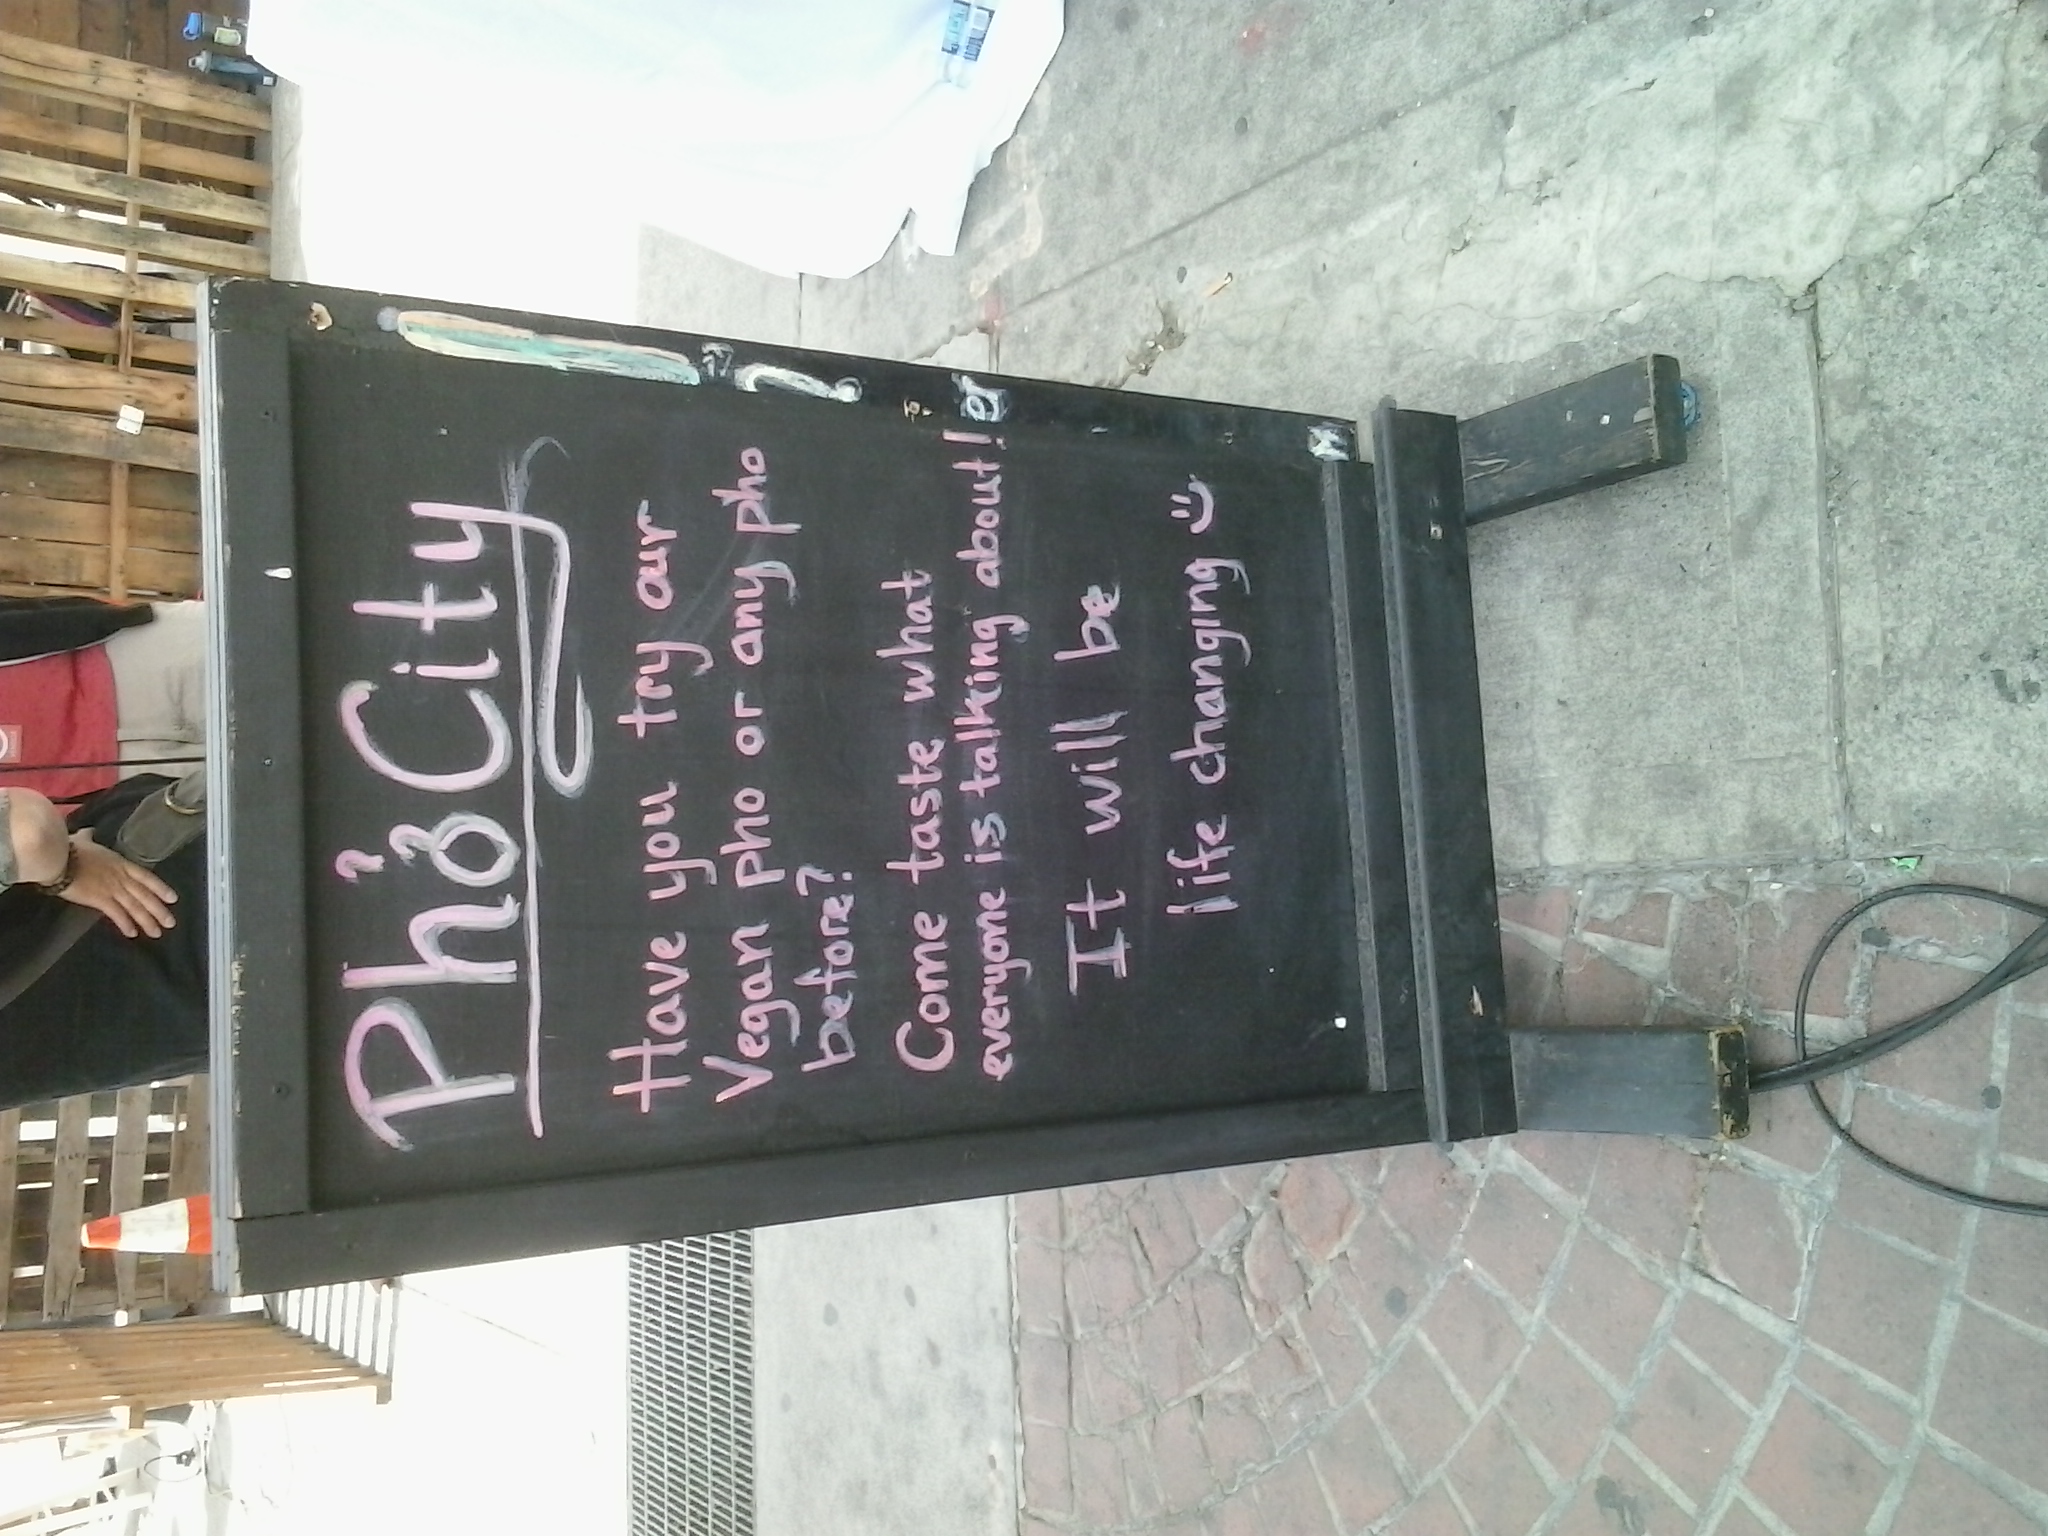 Phở City
Have you try our
Vegan pho or any pho
before?
Come taste what
everyone is talking about!
It will be
life changing